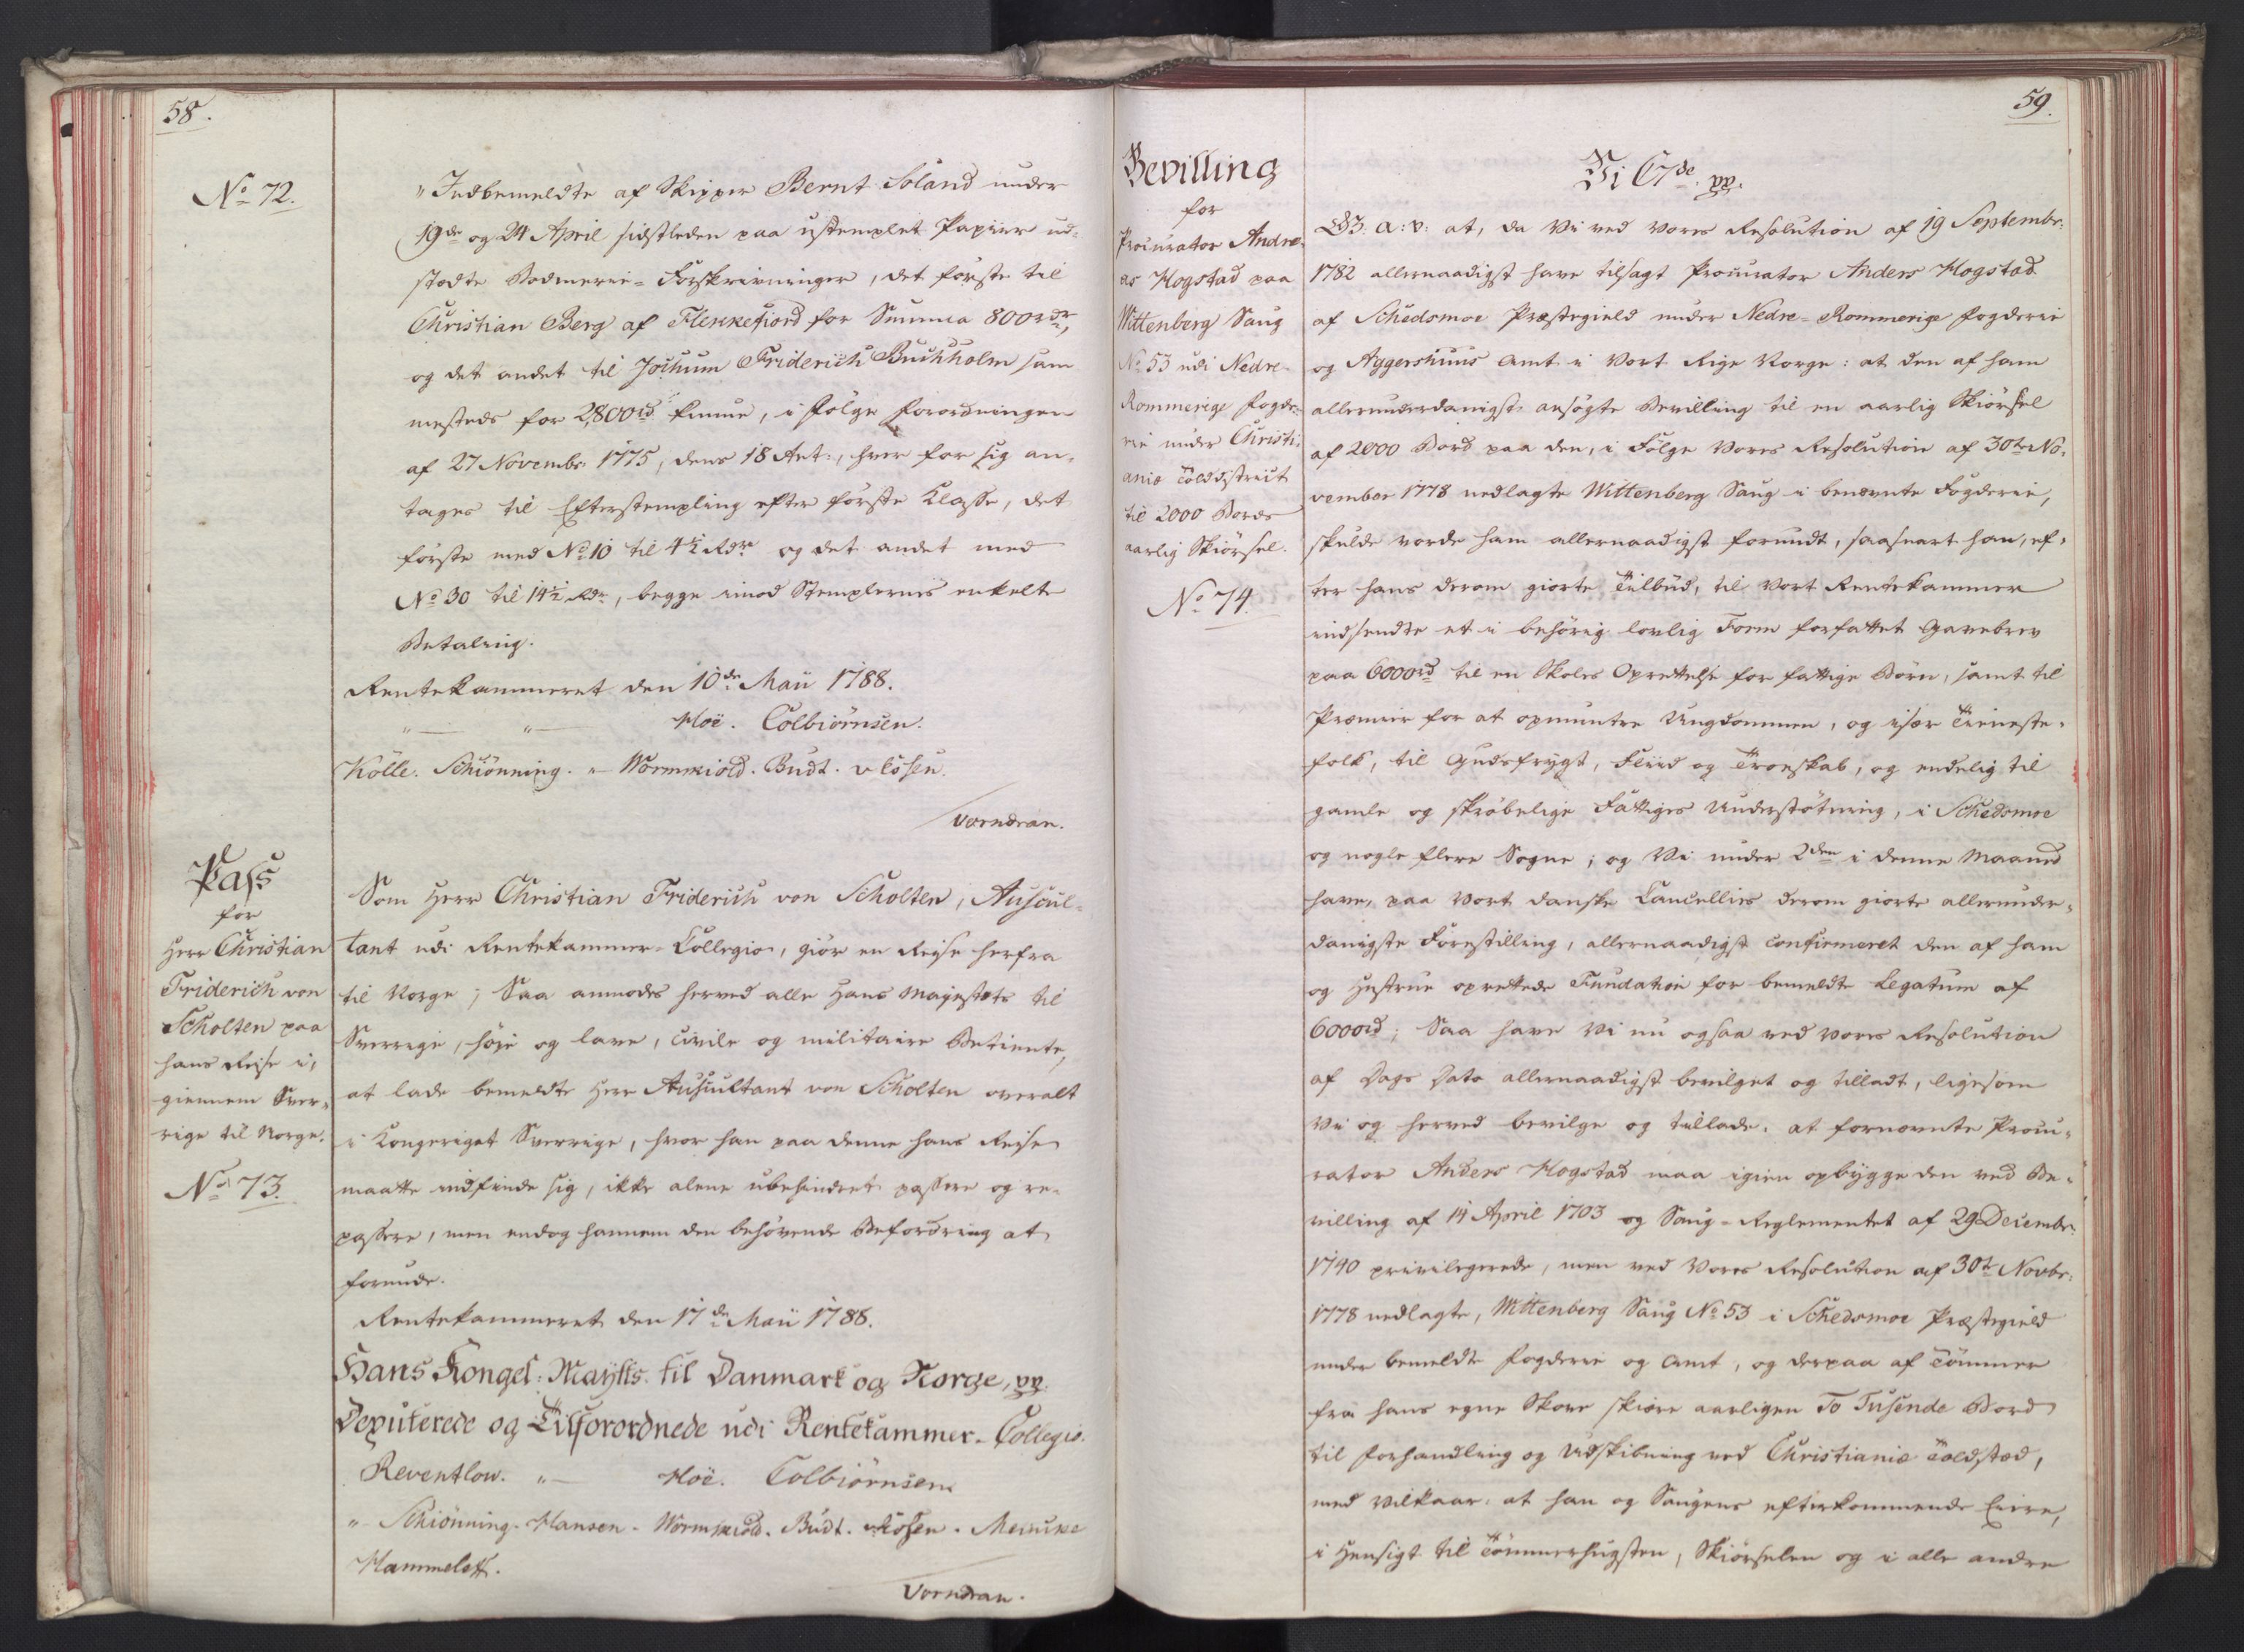 58.
No 72.
"Indbemeldte af Skipper Bernt Soland under
19de og 24 April sidstleden paa ustemplet Papiir ud-
stædte Bodmerie-Forskrivninger, det første til
Christian Berg af Flekkefiord for Summa 800 rdr,
og det andet til Jochum Friderich Buchholm sam-
mesteds for 2,800 rd kunne, i følge Forordningen
af 27 Novembr: 1775, dens 18 Art:, hver for sig an-
tages til Efterstempling efter første Klasse, det
første med No 10 til 4½ Rdr og det andet med
No 30 til 14½ Rdr, begge imod Stemplernes enkelte
Betaling.
Rentekammeret den 10de Maii 1788.
" — " — Hoë. Colbiørnsen.
Kölle. Schiönning. " — Wormskiold. Budt. v Essen.
Vorndran.
Pass
for
Herr Christian
Friderich von
Scholten paa
hans Reise i-
giennem Sver-
rige til Norge.
No 73.
Som Herr Christian Friderich von Scholten, Auscul-
tant udi Rentekammer-Collegio, giør en Reise herfra
til Norge; Saa anmodes herved alle Hans Majestets til
Sverrige, høje og lave, civile og militaire Betiente,
at lade bemeldte Herr Auscultant von Scholten overalt
i Kongeriget Sverrige, hvor han paa denne hans Reise
maatte indfinde sig, ikke alene ubehindret passere og re-
passere, men endog hannem den behøvende Befordring at
forunde.
Rentekammeret den 17de Maii 1788.
Hans Kongel: Mayts. til Danmark og Norge, pp.
Deputerede og Tilforordnede udi Rentekammer-Collegio.
Reventlow. " — Hoë. Colbiörnsen.
" — Schiönning. Hansen. Wormskiold. Budt. v Essen. Meincke
Hammeleff.
Vorndran.
59.
Bevilling
for
Procurator Andre-
as Hogstad paa
Wittenberg Saug
No 53 udi Nedre-
Rommerige Fogde-
rie under Christi-
aniæ Tolddistrict
til 2000 Bords
aarlig Skiørsel.
No 74.
Vi C7de. pp.
G: a: v: at, da Vi ved Vores Resolution af 19 Septembr:
1782 allernaadigst have tilsagt Procurator Anders Hogstad
af Schedsmoe Præstegield under Nedre-Rommerige Fogderie
og Aggershuus Amt i Vort Rige Norge: at den af ham
allerunderdanigst ansøgte Bevilling til en aarlig Skiørsel
af 2000 Bord paa den, i Følge Vores Resolution af 30te No-
vember 1778 nedlagte Wittenberg Saug i benævnte Fogderie,
skulde vorde ham allernaadigst forundt, saasnart han, ef-
ter hans derom giorte Tilbud, til Vort Rentekammer
indsendte et i behørig lovlig Form forfattet Gavebrev
paa 6000 rd til en Skoles Oprettelse for fattige Børn, samt til
Præmier for at opmuntre Ungdommen, og især Tieneste-
folk, til Gudsfrygt, Fliid og Troeskab, og endelig til
gamle og skrøbelige Fattiges Understøtning, i Schedsmoe
og nogle flere Sogne; og Vi under 2den i denne Maaned
have, paa Vort danske Cancellies derom giorte allerunder-
danigste Forestilling, allernaadigst confirmeret den af ham
og Hustrue oprettede Fundation for bemeldte Legatum af
6000 rd; Saa have Vi nu ogsaa ved Vores Resolution
af Dags Dato allernaadigst bevilget og tilladt, ligesom
Vi og herved bevilge og tillade, at fornævnte Procu-
rator Anders Hogstad maa igien opbygge den ved Be-
villing af 14 April 1703 og Saug-Reglementet af 29 Decembr:
1740 privilegerede, men ved Vores Resolution af 30te Novbr:
1778 nedlagte, Wittenberg Saug No 53 i Schedsmoe Præstegield
under bemeldte Fogderie og Amt, og derpaa af Tømmer
fra hans egne Skove skiære aarligen To Tusende Bord
til Forhandling og Udskibning ved Christianiæ Toldsted,
med Vilkaar: at han og Saugens efterkommende Eiere,
i Hensigt til Tømmerhugsten, Skiørselen og i alle andre